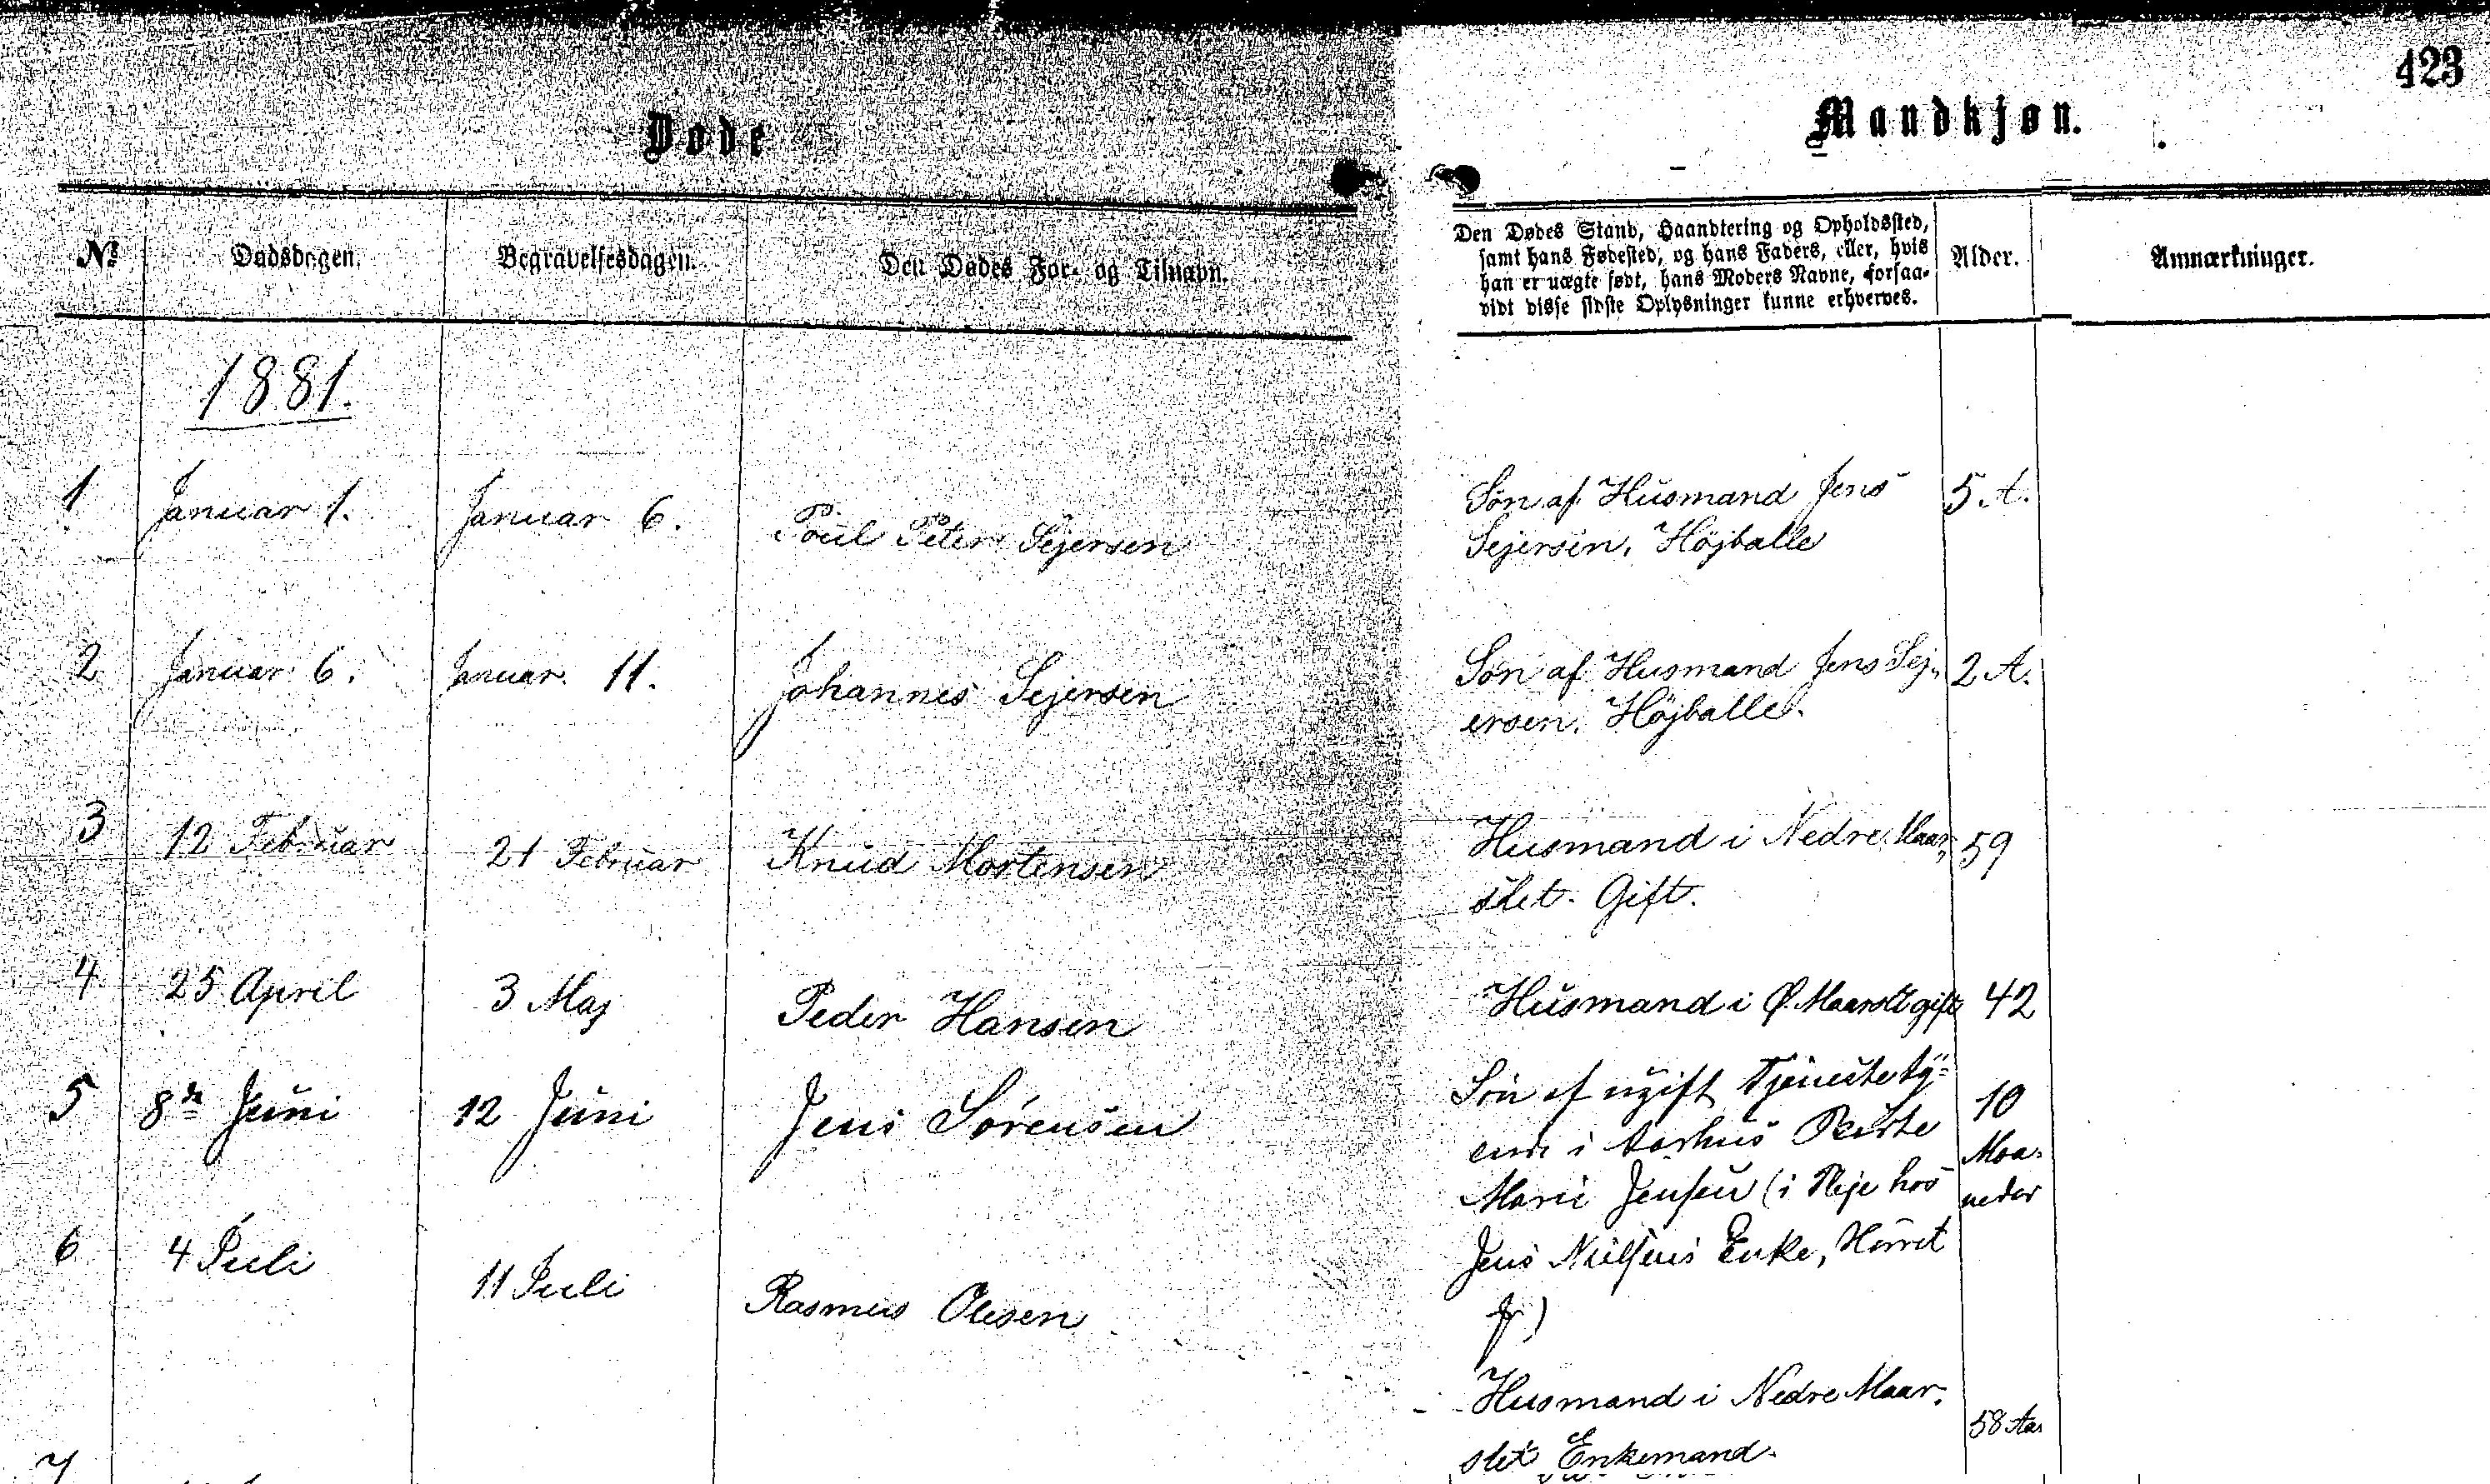 423
Døde
Mandkjøn.
No
Dødsdagen.
Begravelsesdagen.
Den Dødes For- og Tilnavn.
Den Dødes Stand, Haandtering og Opholdssted,
samt hans Fødested, og hans Faders, eller, hvis
han er uægte født, hans Moders Navne, forsaa-
vidt disse sidste Oplysninger kunne erhverves.
Alder.
Anmærkninger.
1881.
1
Januar 1.
Januar 6.
Poul Peter Sejersen
Søn af Husmand Jens
Sejersen, Højballe
5 A.
2
Januar 6.
Januar 11.
Johannes Sejersen
Søn af Husmand Jens Sej-
ersen. Højballe.
2 A.
3
12 Februar
21 Februar
Knud Mortensen
Husmand i Nedre Maar-
slet. Gift.
59
4
25 April
3 Maj
Peder Hansen
Husmand i Ø. Maarslt gift
42
5
8de Juni
12 Juni
Jens Sørensen
Søn af ugift Tjenestety-
ende i Aarhus
Marie Jensen (i Pleje hos
Jens Nielsens Enke, Hörret
10
Maa-
neder
6
4 Juli
11 Juli
Rasmus Olesen
Husmand i Nedre Maar-
slet Enkemand.
58 Aar
7